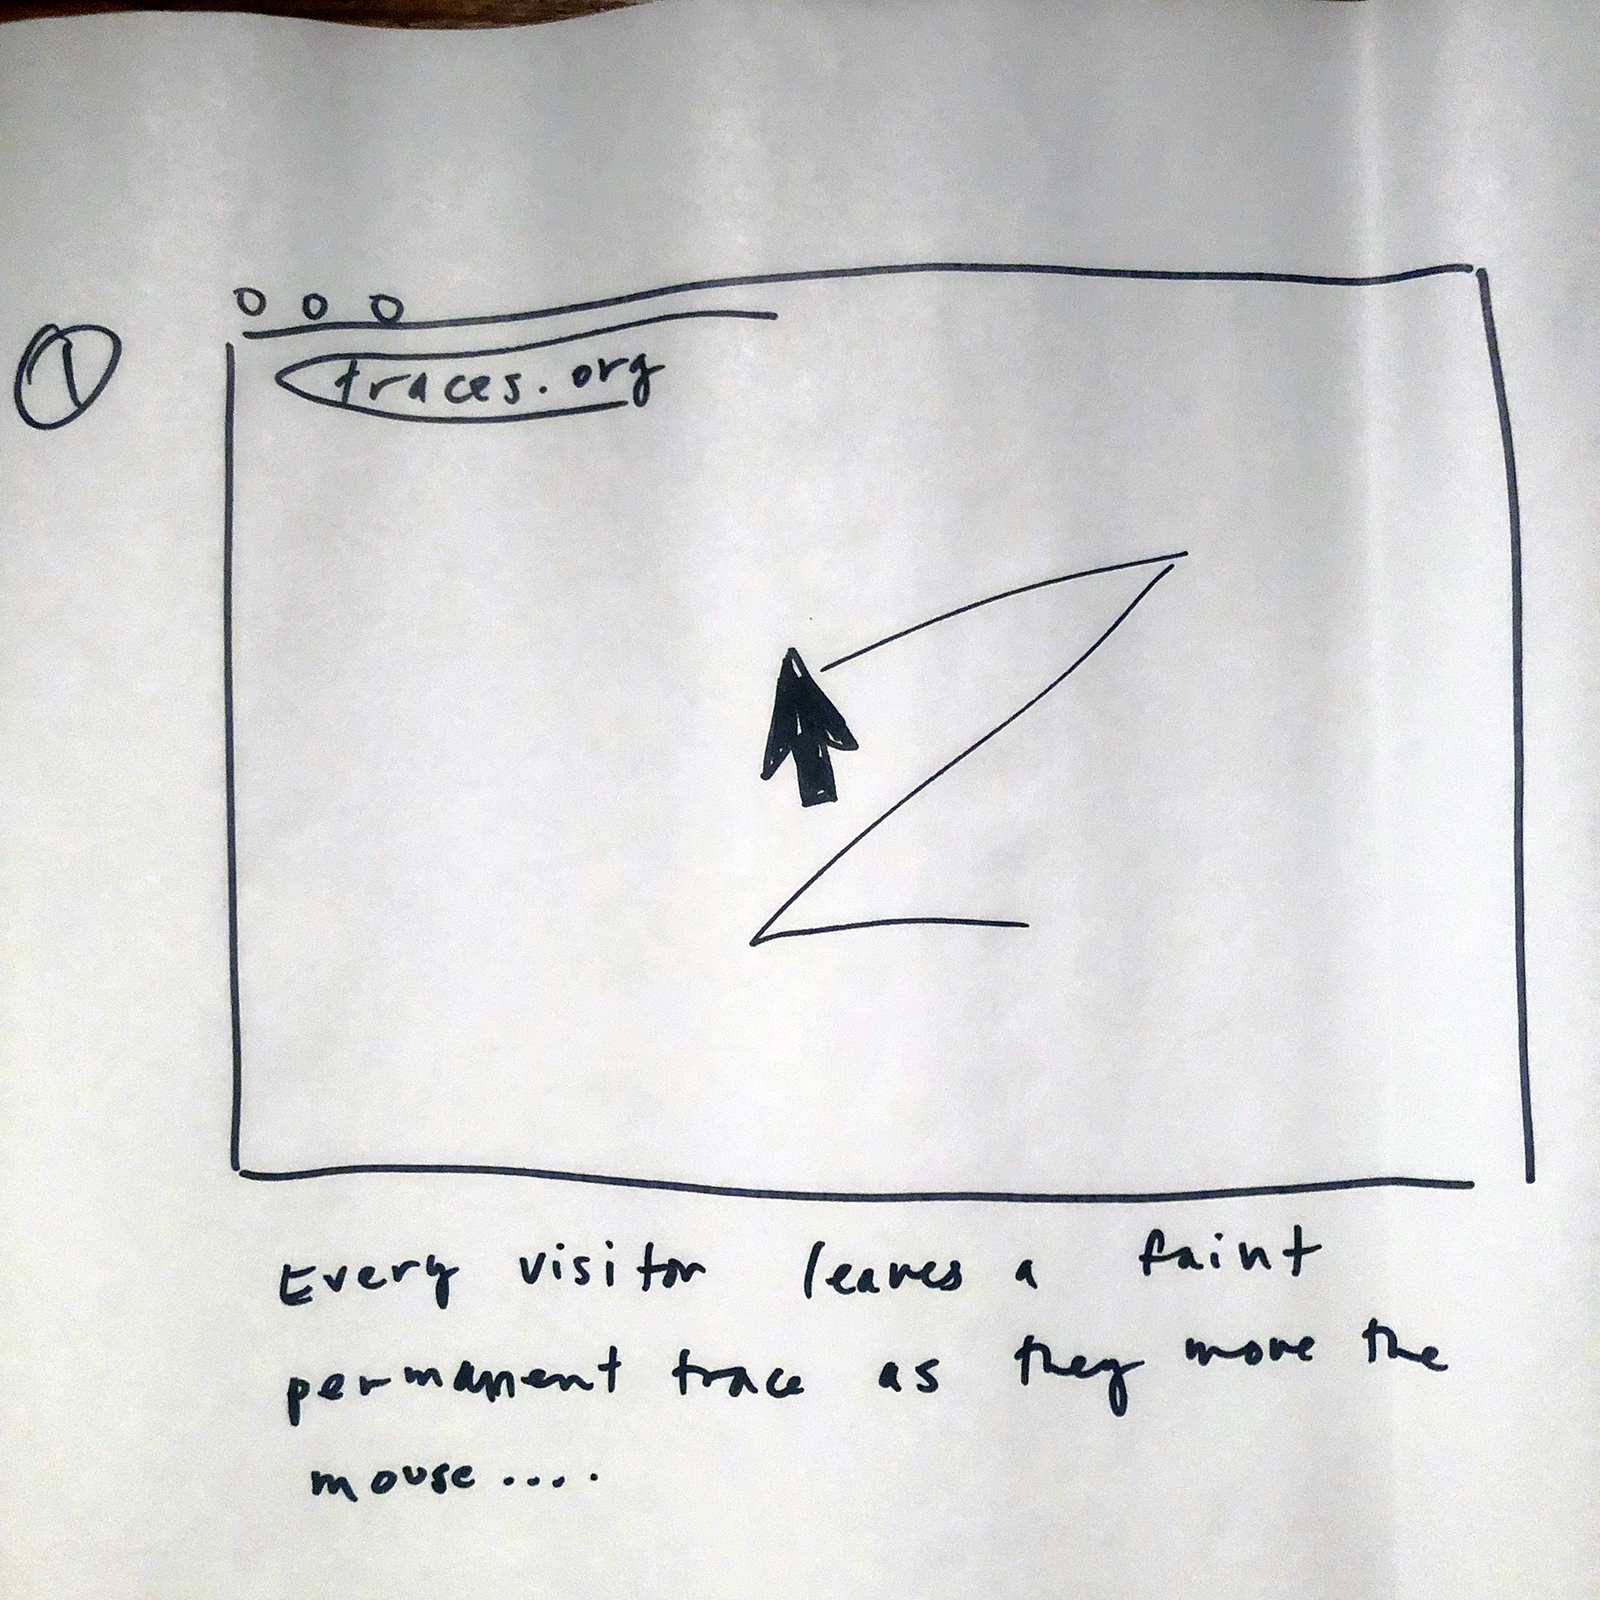 1
traces.org
Every visitor leaves a faint
permanent trace as they move the
mouse....